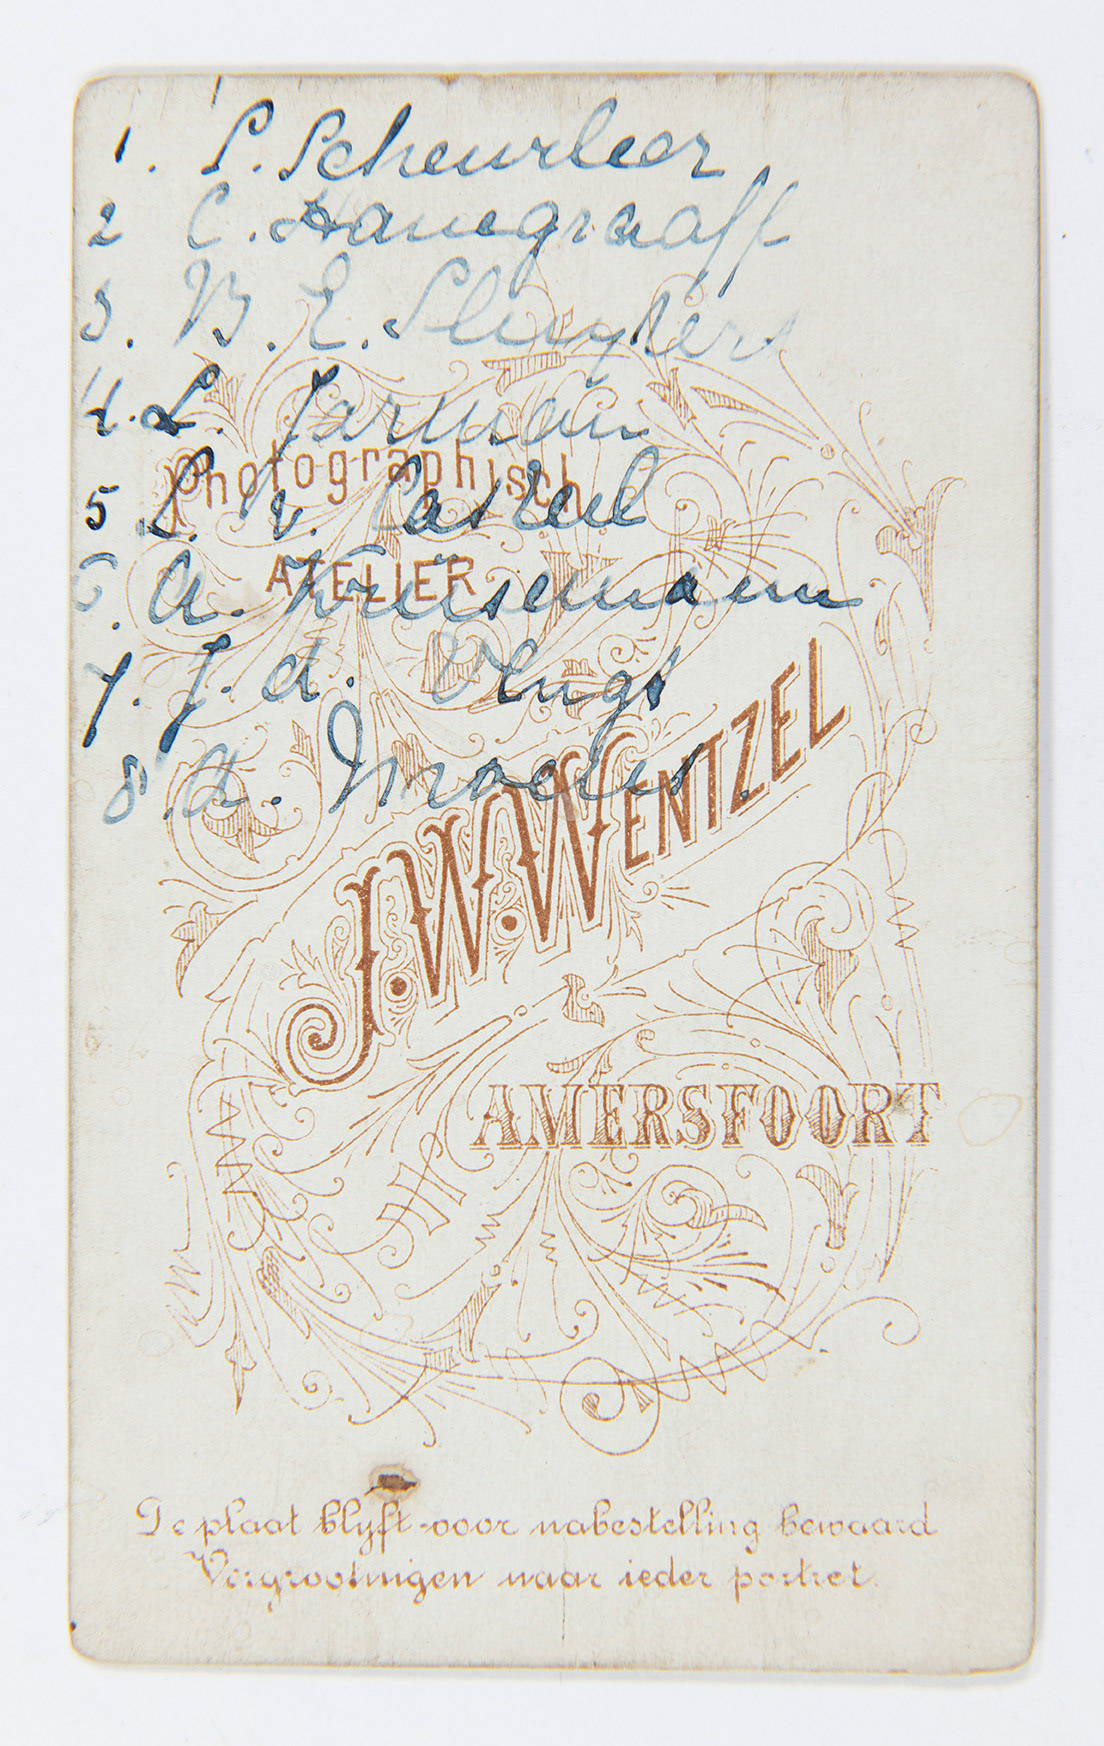 1. P. Scheurleer
2 C. Hanegraaff
3. B. E. Sluyters
4. L. Jarman
5 L. v. Casteel
6. A. Krüsemann
7. J. d. Vlugt
8. A. Moens.
Photographisch
ATELIER
J. W. WENTZEL
AMERSFOORT
De plaat blyft voor nabestelling bewaard
Vergrootingen naar ieder portret.